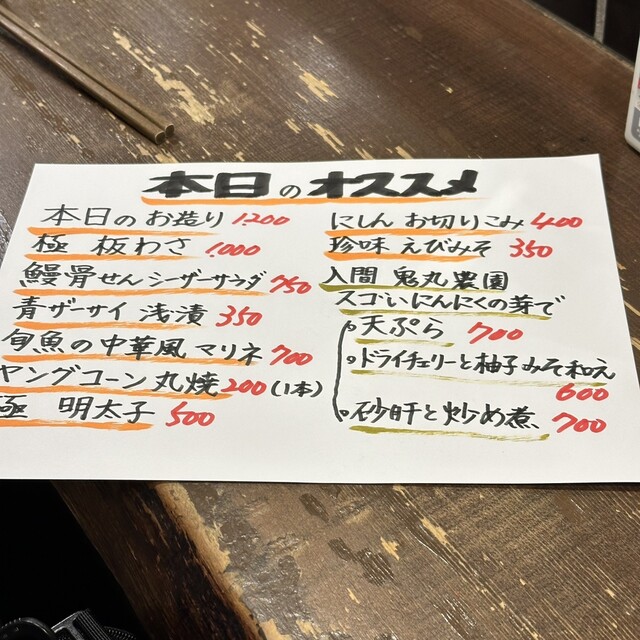 本日のオススメ
本日のお造り 1.200
極 板わさ 1.000
鰻骨せんシーザーサラダ 750
青ザーサイ 浅漬 350
旬魚の中華風マリネ 700
ヤングコーン丸焼 200(1本)
極 明太子 500
にしん お切りこみ 400
珍味 えびみそ 350
入間 鬼丸農園
スゴいにんにくの芽で
。天ぷら 700
。ドライチェリーと柚子みそ和え
600
。砂肝と炒め煮 700